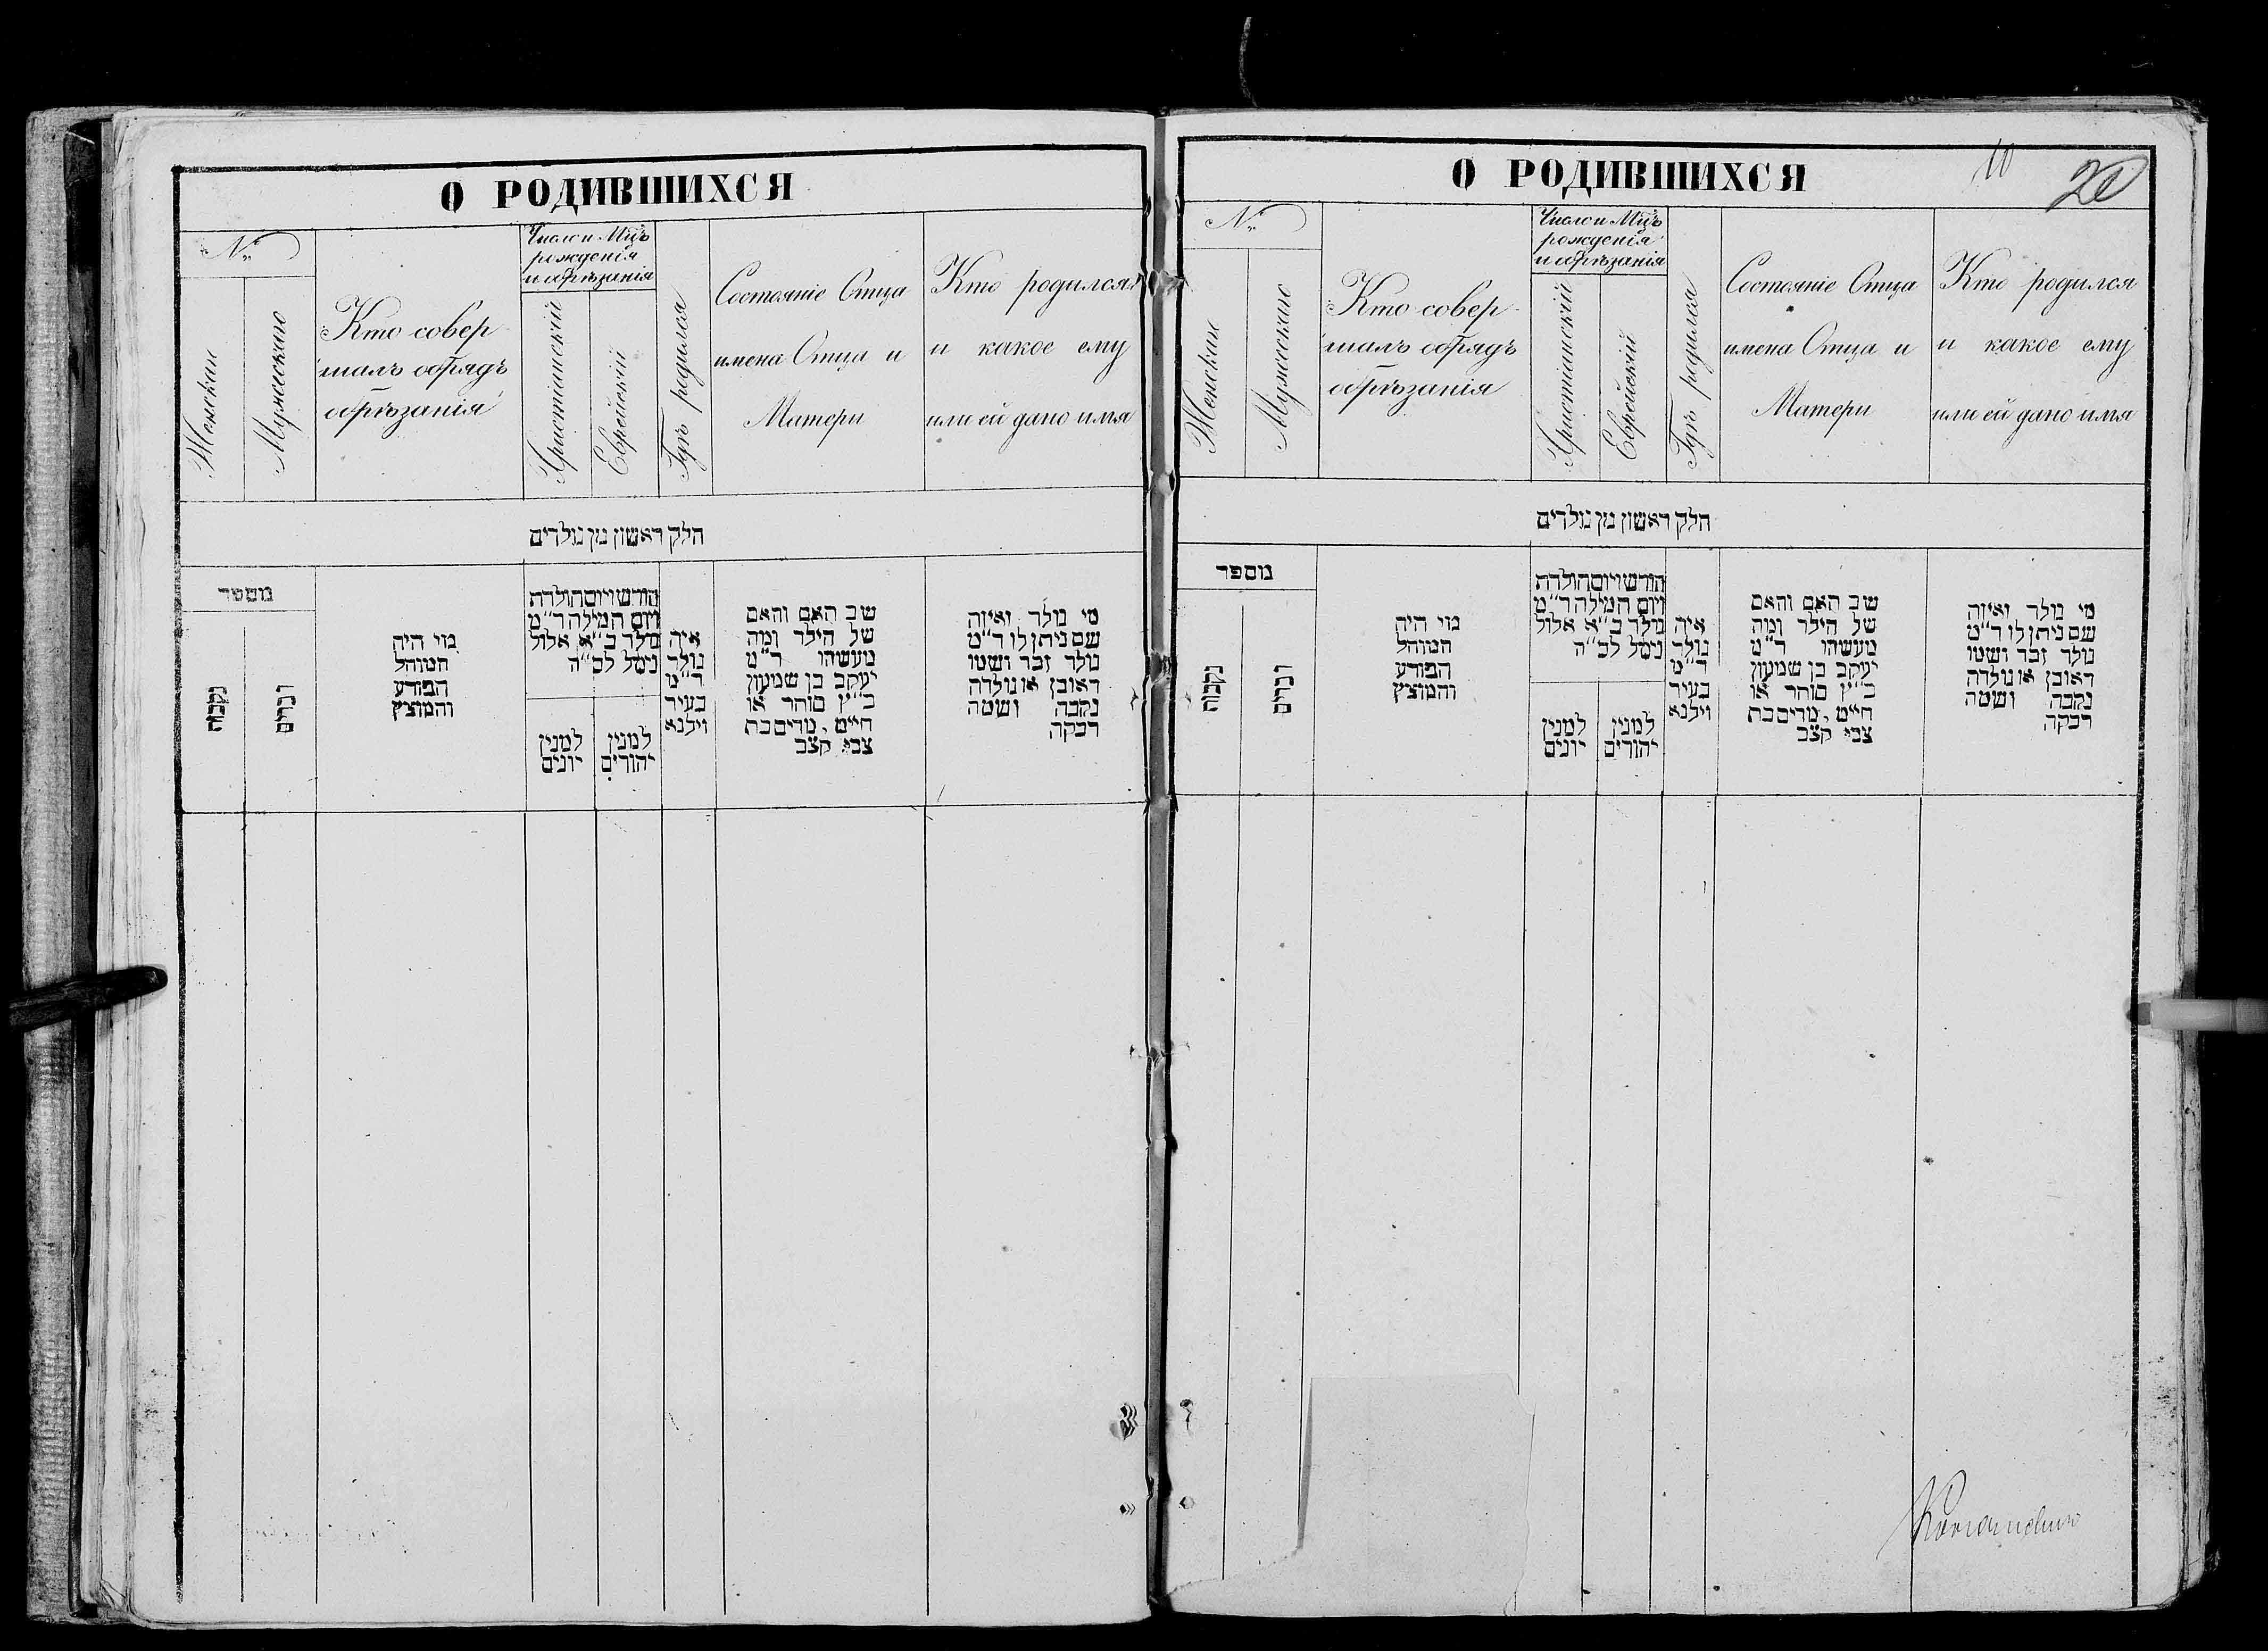 О РОДИВШИХСЯ
№
Женскаи
Мужескаго
Кто совер-
шалъ обрядъ
обрѣзанія
Число и Мцъ
рожденія
и обрѣзанія
Христіанскій
Еврейскій
Гдѣ родился
Состояніе Отца
имена Отца и
Матери
Кто родился
и какое ему
или ей дано имя
חלק ראשון מן נולדים
מספר
נקבות
זכרים
מי היה
המוהל
הפורע
והמוצץ
חודש ויום הולדת
ויום המילה ד״מ
נולד ב״א אלול
נימל לס״ה
למנין
יונים
למנין
יהודים
איה
נולד
ד״מ
בעיר
וילנא
שב האם והאם
של הילד ומה
מעשיהו ד״מ
יעקב בן שמעון
כ״ץ סוחר או
חייט, מרים בת
צבי קצב
מי נולד ואיזה
שם ניתן לו ד״מ
נולד זכר ושמו
ראובן או נולדה
נקבה ושמה
רבקה
О РОДИВШИХСЯ
10
20
№
Женскаи
Мужескаго
Кто совер-
шалъ обрядъ
обрѣзанія
Число и Мцъ
рожденія
и обрѣзанія
Христіанскій
Еврейскій
Гдѣ родился
Состояніе Отца
имена Отца и
Матери
Кто родился
и какое ему
или ей дано имя
חלק ראשון מן נולדים
מספר
נקבות
זכרים
מי היה
המוהל
הפורע
והמוצץ
חודש ויום הולדת
ויום המילה ד״מ
נולד ב״א אלול
נימל לס״ה
למנין
יונים
למנין
יהודים
איה
נולד
ד״מ
בעיר
וילנא
שב האם והאם
של הילד ומה
מעשיהו ד״מ
יעקב בן שמעון
כ״ץ סוחר או
חייט, מרים בת
צבי קצב
מי נולד ואיזה
שם ניתן לו ד״מ
נולד זכר ושמו
ראובן או נולדה
נקבה ושמה
רבקה